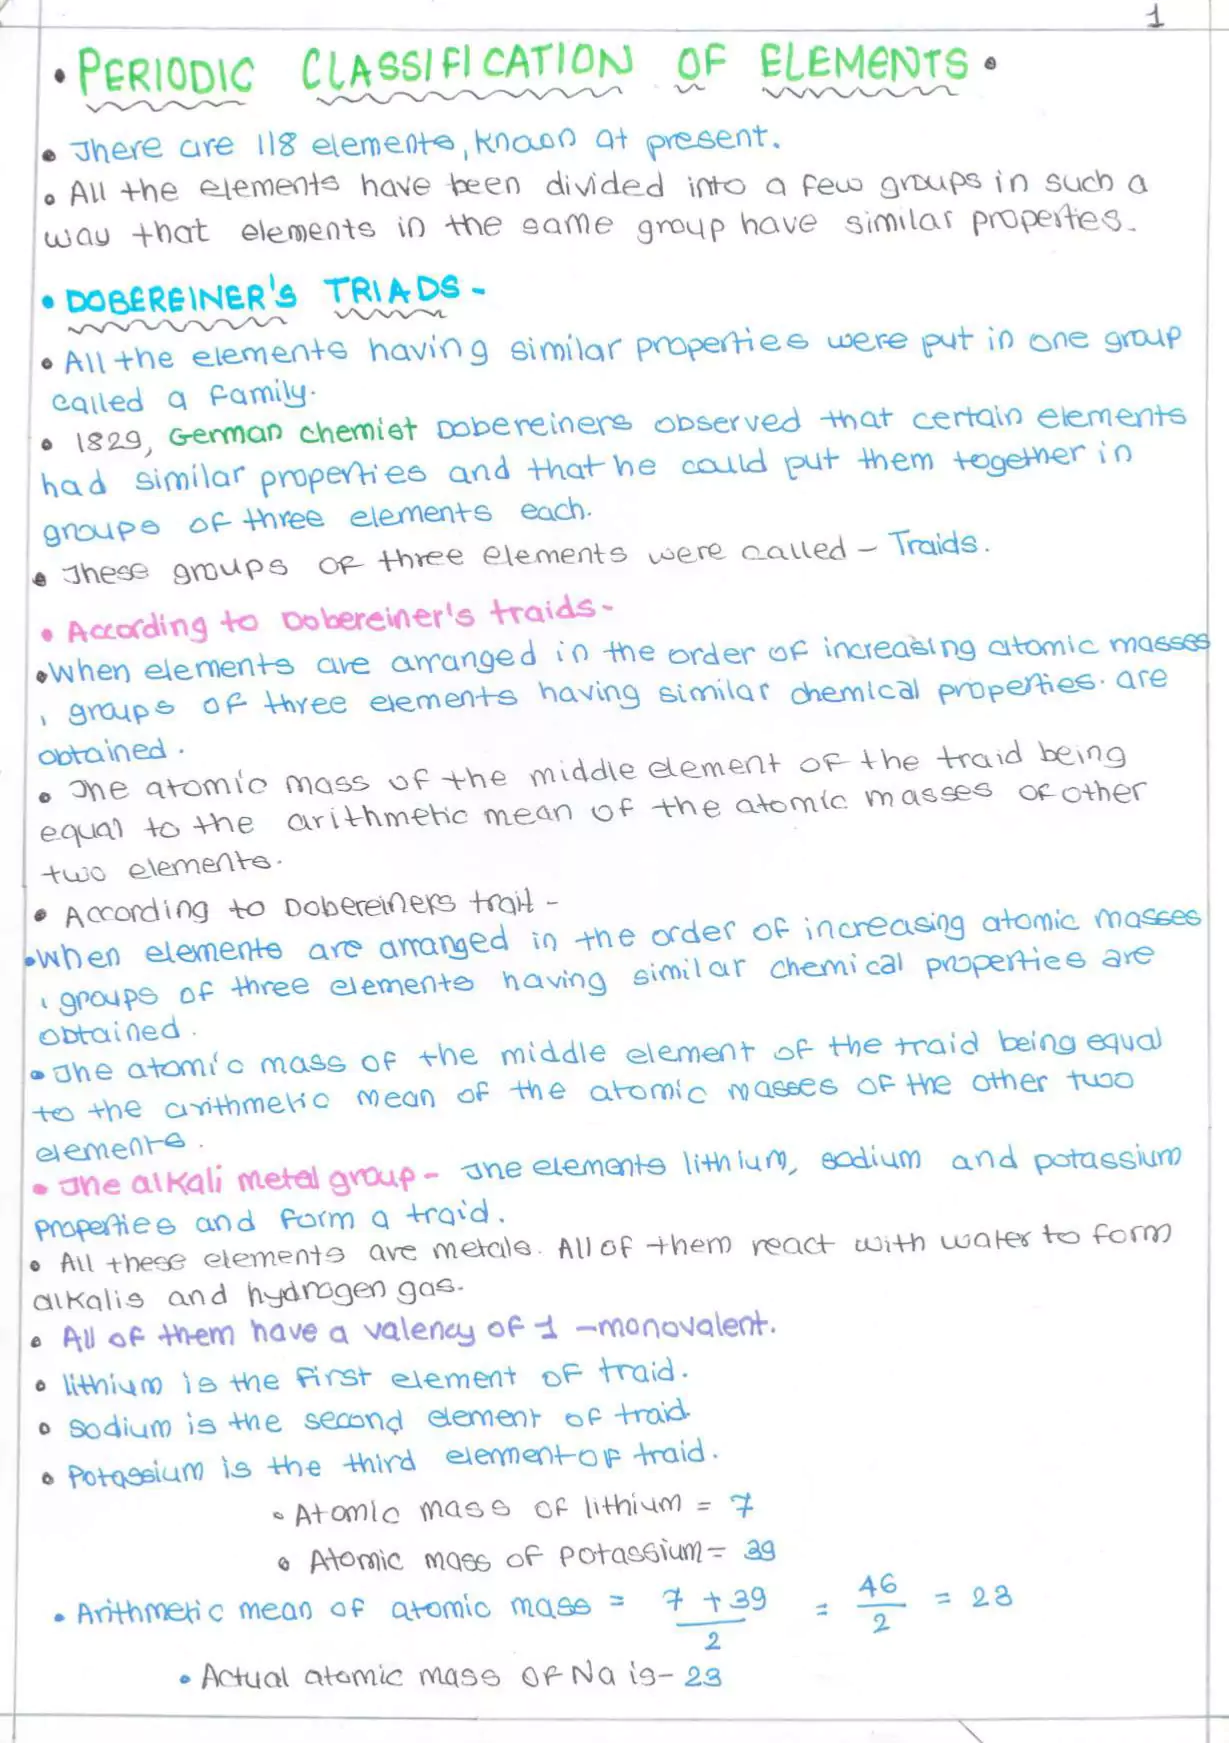 1
• PERIODIC CLASSIFICATION OF ELEMENTS •
• There are 118 elements, known at present.
• All the elements have been divided into a few groups in such a
way that elements in the same group have similar properties.
• DOBEREINER'S TRIADS -
• All the elements having similar properties were put in one group
called a family.
• 1829, German chemist Dobereiners observed that certain elements
had similar properties and that he could put them together in
groups of three elements each.
• These groups of three elements were called - Traids.
• According to Dobereiner's traids -
• When elements are arranged in the order of increasing atomic masses
, groups of three elements having similar chemical properties. are
obtained.
• The atomic mass of the middle element of the traid being
equal to the arithmetic mean of the atomic masses of other
two elements.
• According to Dobereiners trait -
• When elements are arranged in the order of increasing atomic masses
, groups of three elements having similar chemical properties are
obtained.
• The atomic mass of the middle element of the traid being equal
to the arithmetic mean of the atomic masses of the other two
elements.
• The alkali metal group - The elements lithium, sodium and potassium
properties and form a traid.
• All these elements are metals. All of them react with water to form
alkalis and hydrogen gas.
• All of them have a valency of 1 - monovalent.
• lithium is the first element of traid.
• Sodium is the second element of traid
• Potassium is the third element of traid.
• Atomic mass of lithium = 7
• Atomic mass of potassium = 39
• Arithmetic mean of atomic mass = 7 + 39 / 2 = 46 / 2 = 23
• Actual atomic mass of Na is - 23